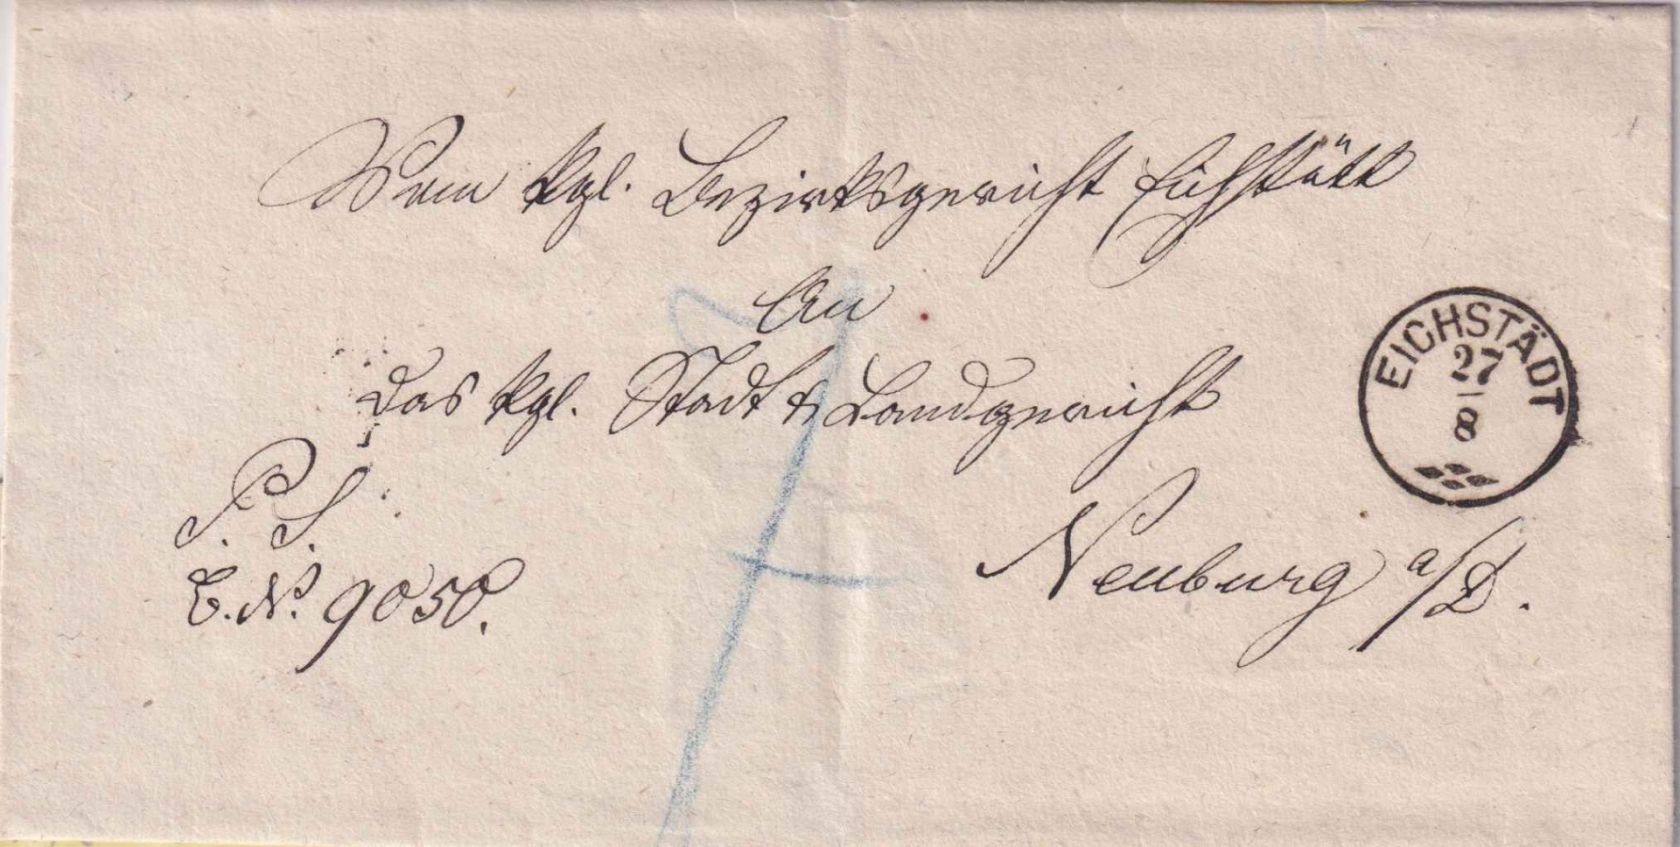 Vom kgl. Bezirksgericht Eichstätt
An
das kgl. Stadt & Landgericht
EICHSTÄDT
27
8
P. S.
E. No. 9050.
Neuburg a/D.
7